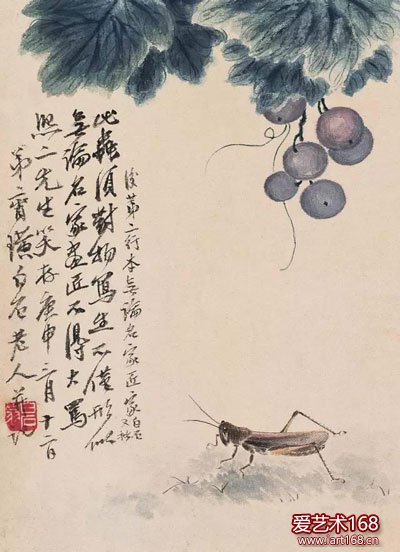 此蟲須對物寫生不僅形似
無論名家畫匠不得大罵
熙二先生笑存庚申三月十二日
弟齊璜白石老人并記
第二行本無論名家匠家
白石又
爱艺术168
www.art168.cn